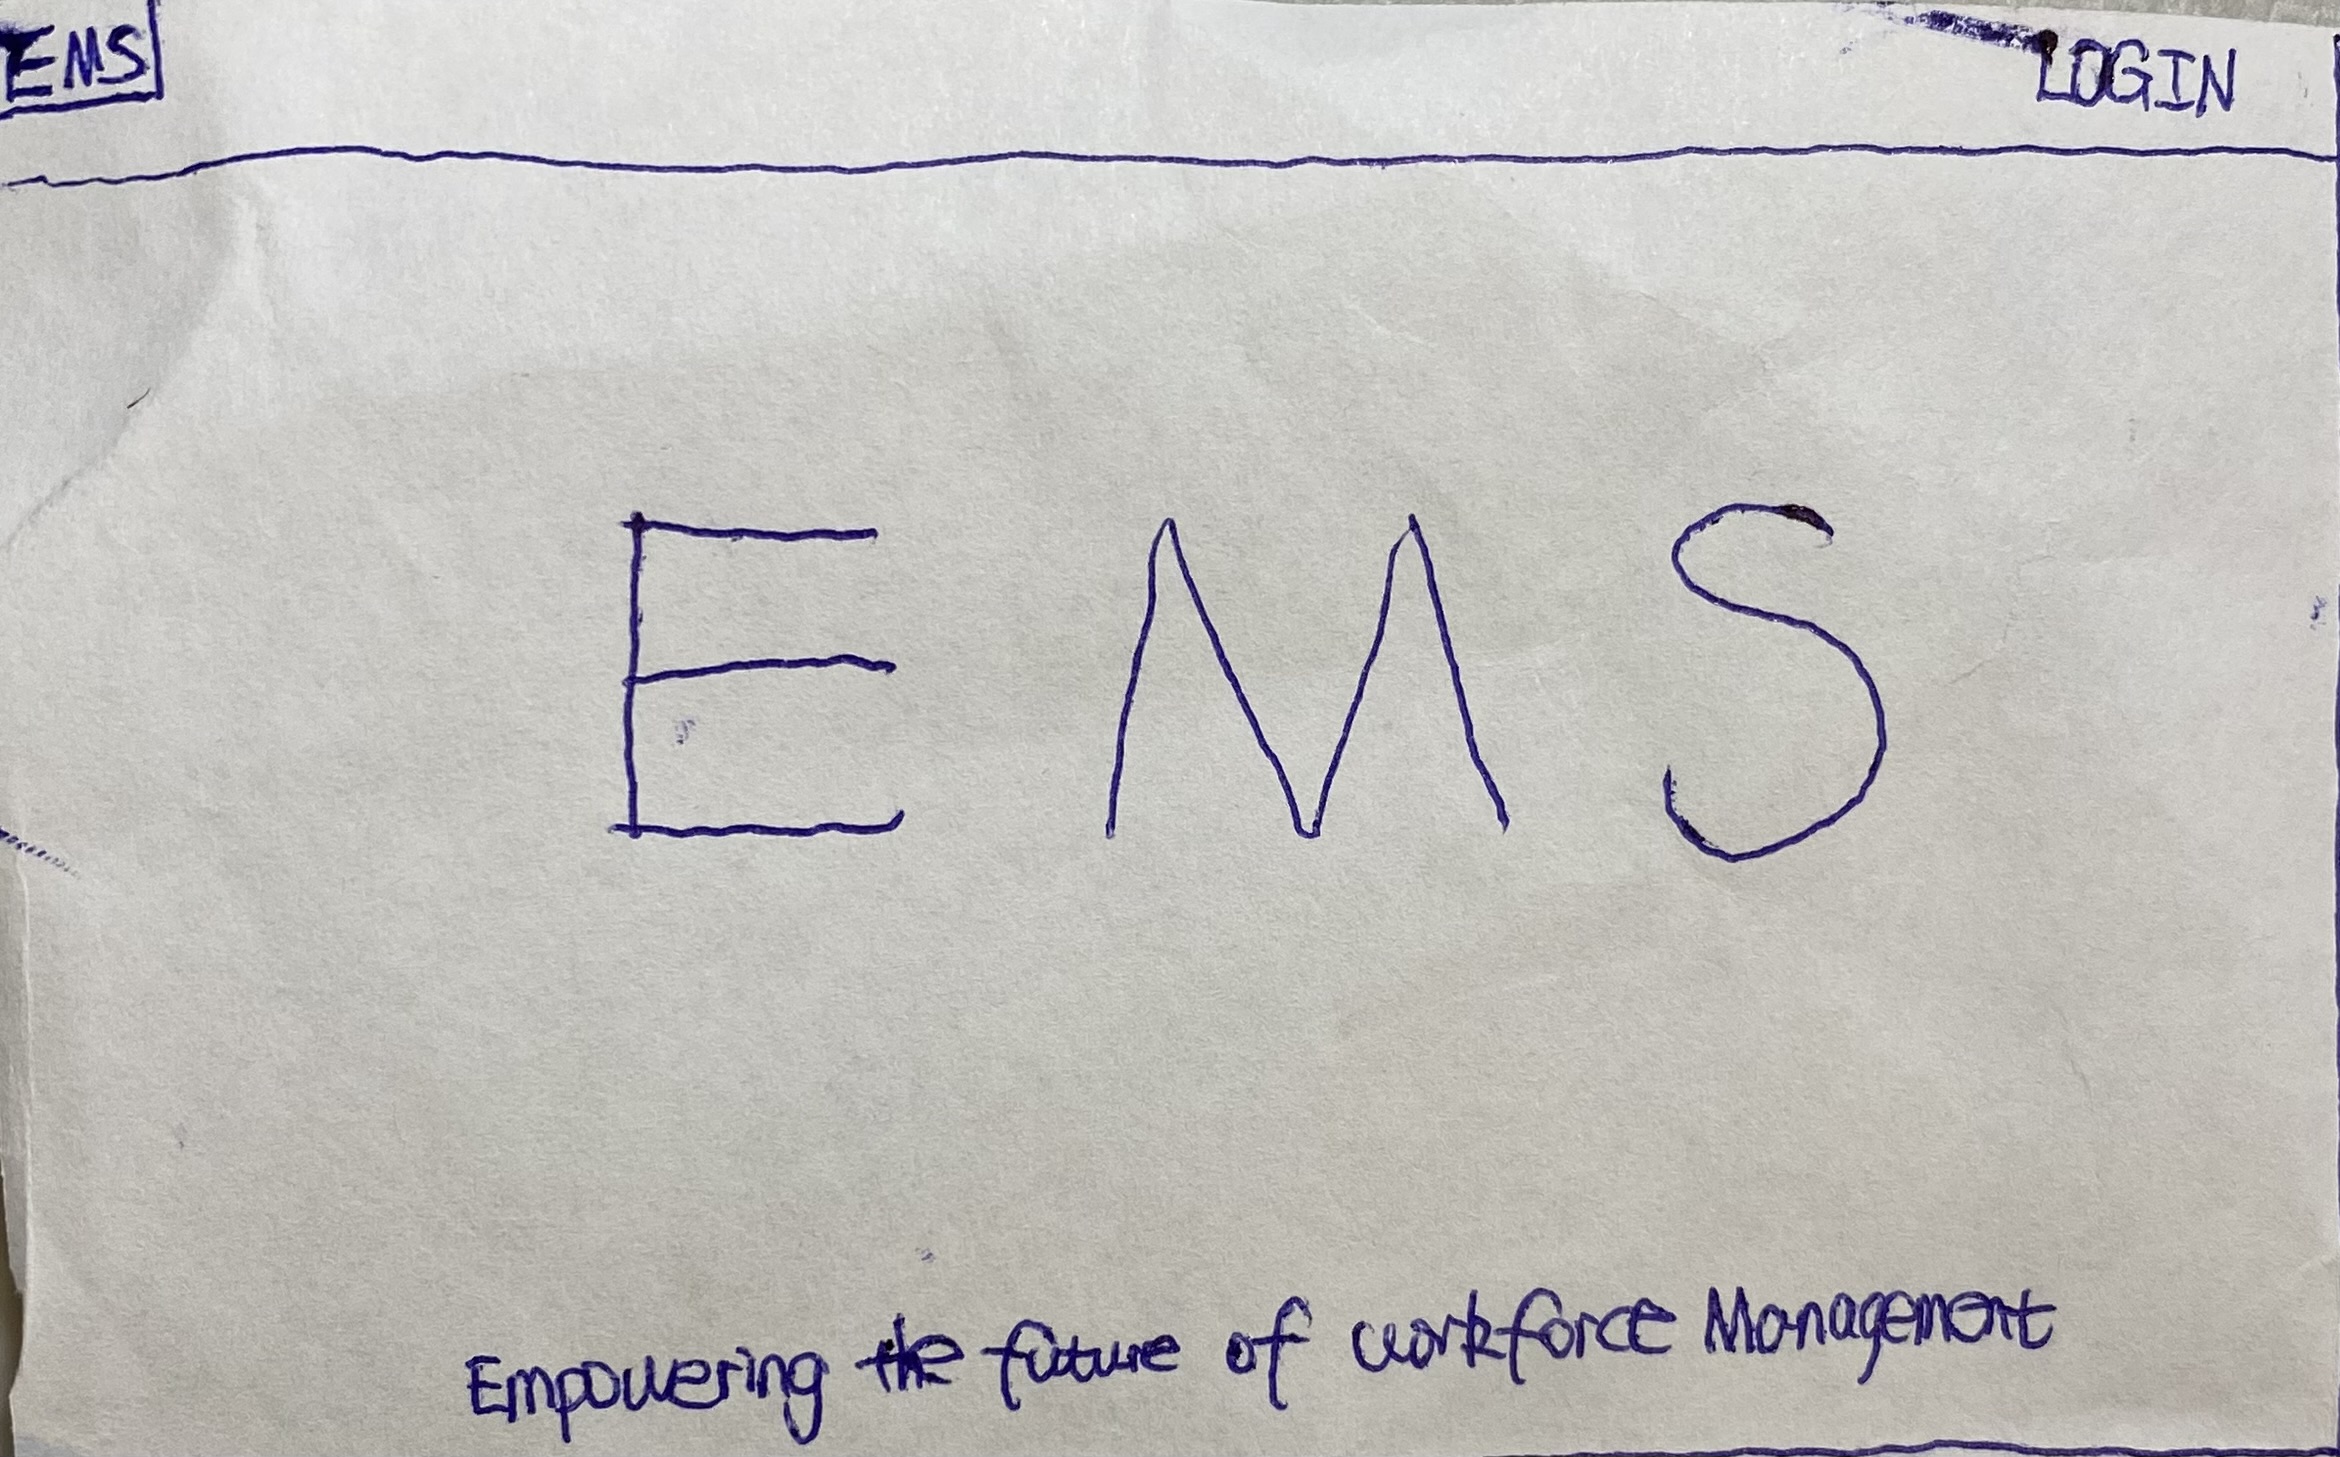 EMS
LOGIN
E M S
Empowering the future of workforce Management